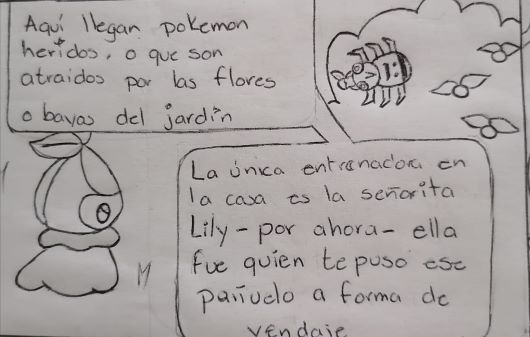 Aquí llegan pokemon
heridos, o que son
atraidos por las flores
o bayas del jardín
La única entrenadora en
la casa es la señorita
Lily - por ahora - ella
fue quien te puso ese
pañuelo a forma de
vendaje